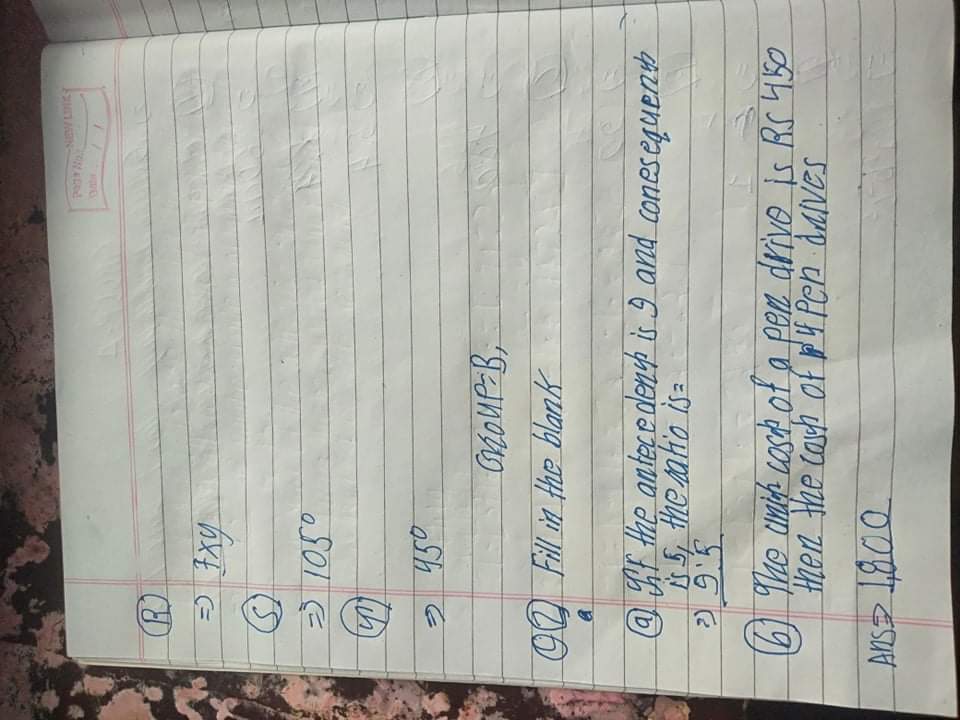 Page No.: NEW LINK
Date: / /
(R)
=> 7xy
(S)
=> 105°
=> 45°
GROUP=B,
Q2) Fill in the blank
a
(a) If the antecedent is 9 and conesequent
is 5, the ratio is=
=) 9:5
(b) The unit cost of a pen drive is RS 450
then the cost of 4 Pen drives
Ans=> 1800